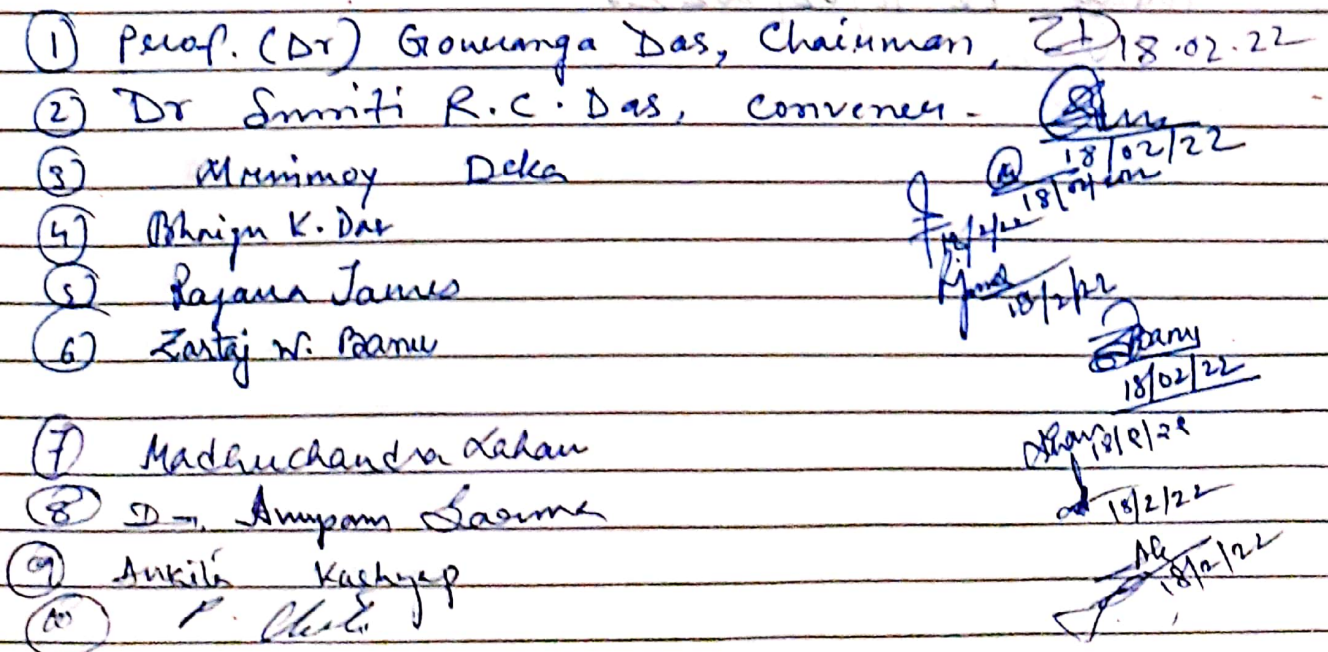 ① Prof. (Dr) Gouranga Das, Chairman, 18.02.22
② Dr Smriti R.C. Das, Convener - 18/02/22
③ Mrinmoy Deka
④ Bhrigu K. Das
⑤ Rajana James 18/2/22
⑥ Zartaj W. Banu Banu 18/02/22
⑦ Madhuchandra Lahan 18/2/22
⑧ Dr. Anupam Sarma 18/2/22
⑨ Ankita Kashyap 18/2/22
⑩ P.